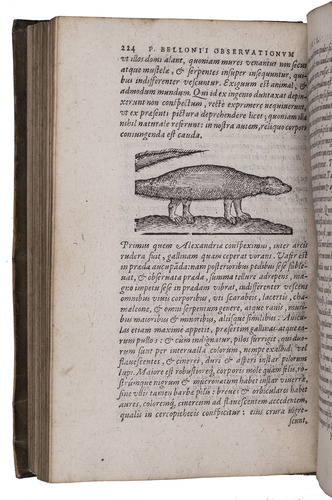 224 P. BELLONII OBSERVATIONUM
ut illos domi alant, quoniam mures venantur non secus
atque mustelæ, & serpentes insuper insequuntur, qui-
bus indifferenter vescuntur. Exiguum est animal, &
admodum mundum. Qui id ex ingenio duntaxat depin-
xerunt non conspectum, rectè exprimere nequiverunt,
ut ex præsenti pictura deprehendere licet; quoniam illa
nihil naturale referunt: in nostra autem, reliquo corpori
coniungenda est cauda.
Primus quem Alexandriæ conspeximus, inter arcis
rudera fuit, gallinam quam ceperat vorans. Vafer est
in præda aucupãda: nam posterioribus pedibus sese suble-
vat, & observata præda, summa tellure adrepens, ma-
gno impetu sese in prædam vibrat, indifferenter vescens
omnibus vivis corporibus, uti scarabeis, lacertis, cha-
mæleone, & omni serpentum genere, atque ranis, muri-
bus maioribus & minoribus, aliisque similibus: Avicu-
las etiam maximè appetit, præsertim gallinas atque ea-
rum pullos: & cùm indignatur, pilos surrigit, qui duo-
rum sunt per intervalla colorum, nempe exalbidi vel
flavescentes, & cinerei, duri & asperi instar pilorum
lupi. Maiore est robustioreq; corporis mole quàm felis, ro-
strumque nigrum & mucronatum habet instar viverræ,
sine ullis tamen barbæ pilis: breves & orbiculares habet
aures, coloremq; cinereum ad flavescentem accedentem,
qualis in cercopitheco conspicitur: eius crura nigre-
scunt,